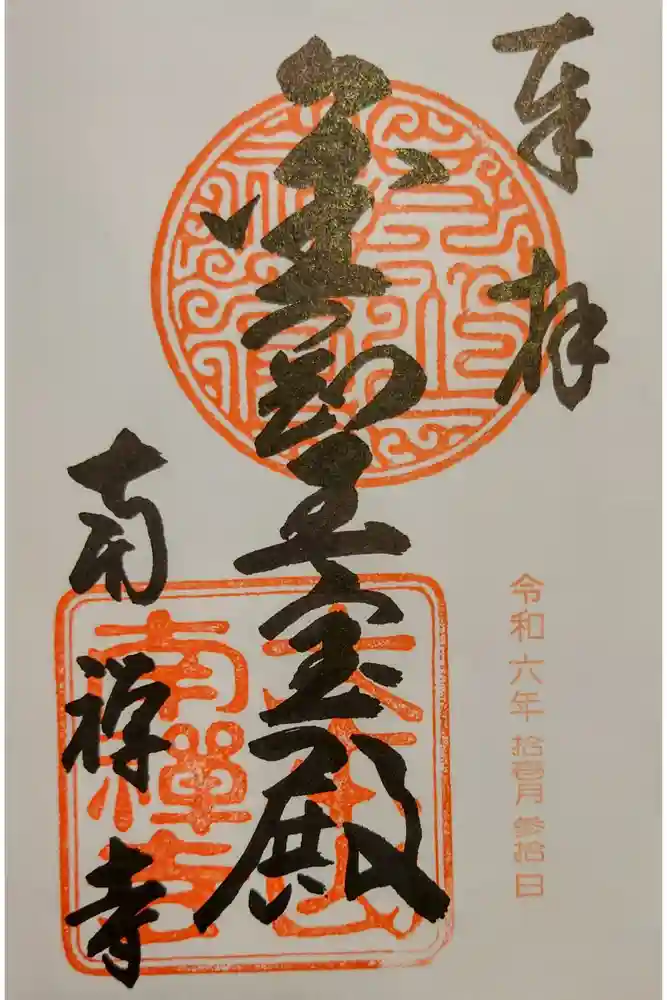 奉拝
金剛王宝殿
令和六年 拾壱月 参拾日
南禅寺
大本山
南禪寺